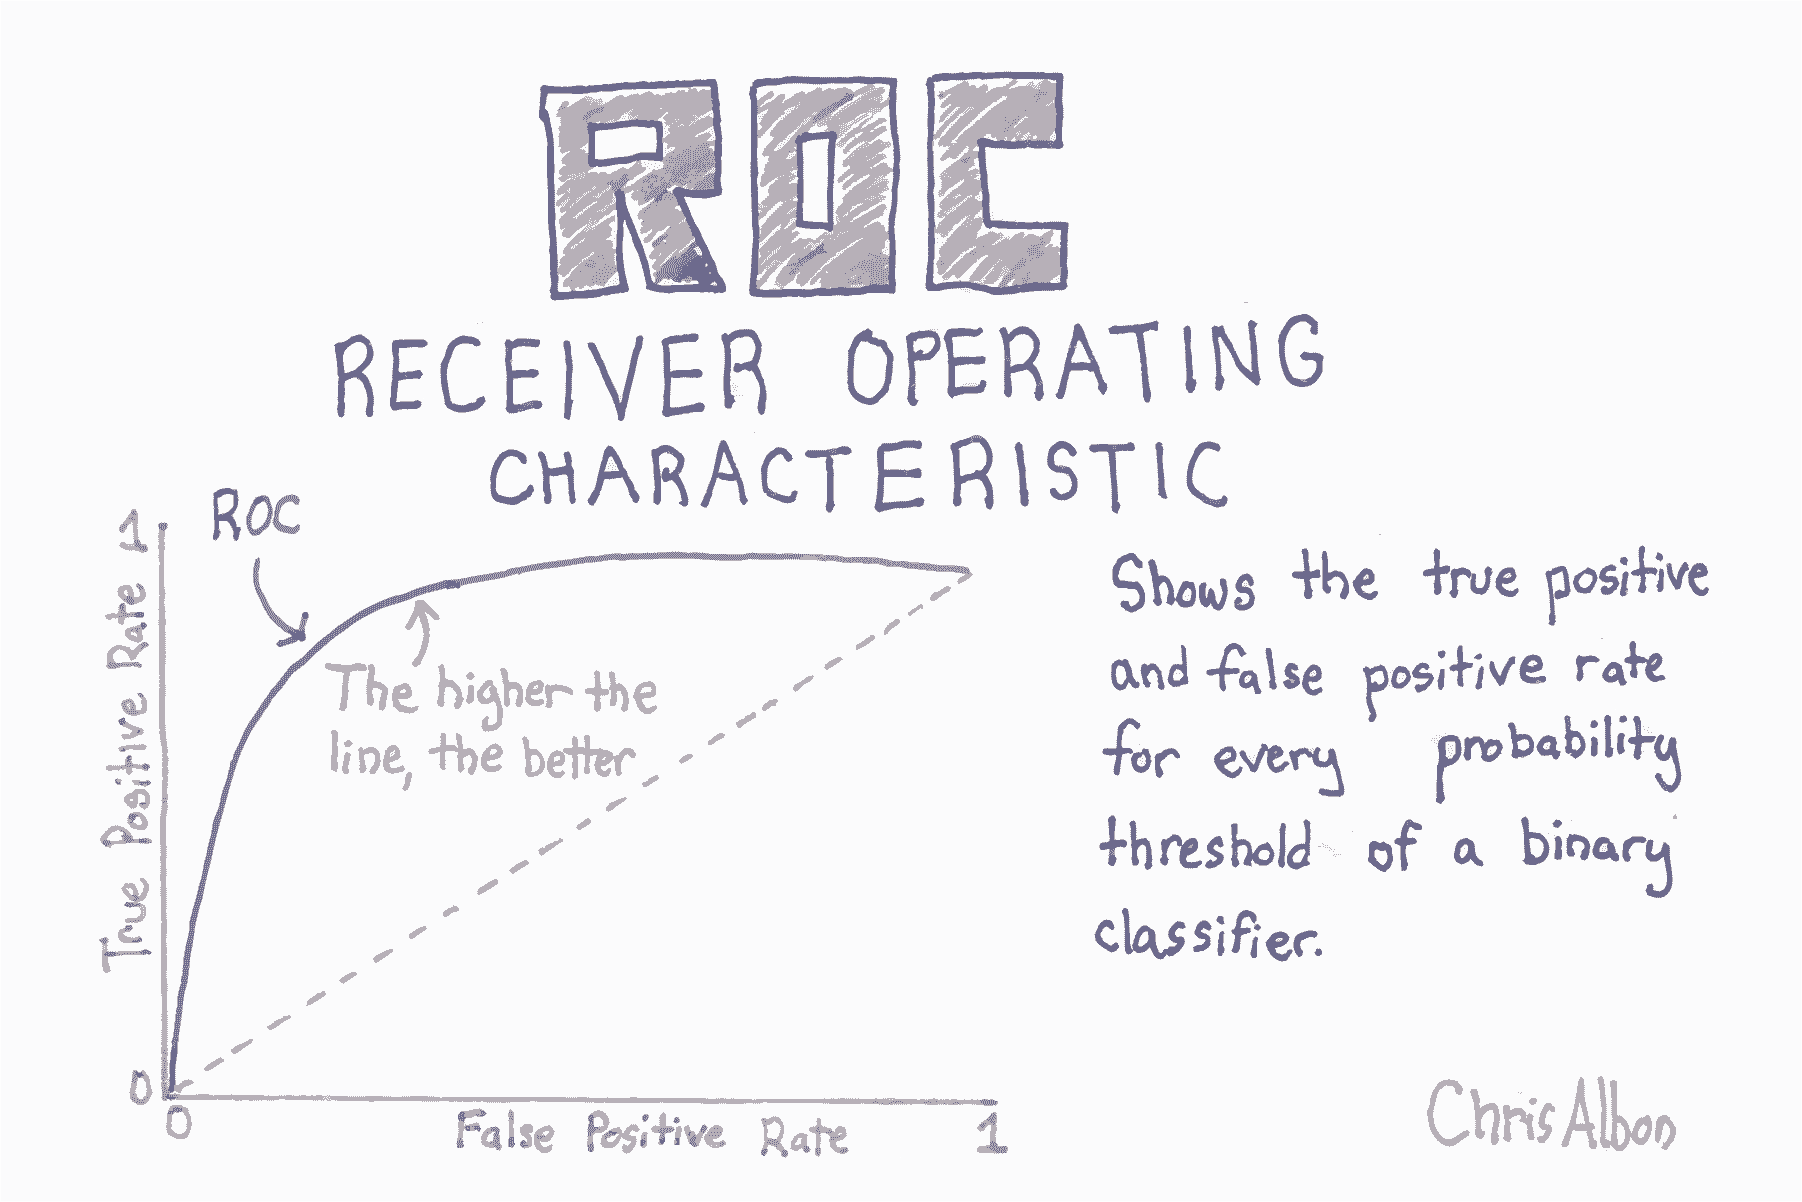 ROC
RECEIVER OPERATING
CHARACTERISTIC
ROC
1
True Positive Rate
The higher the
line, the better
0
0
False Positive Rate
1
Shows the true positive
and false positive rate
for every probability
threshold of a binary
classifier.
Chris Albon